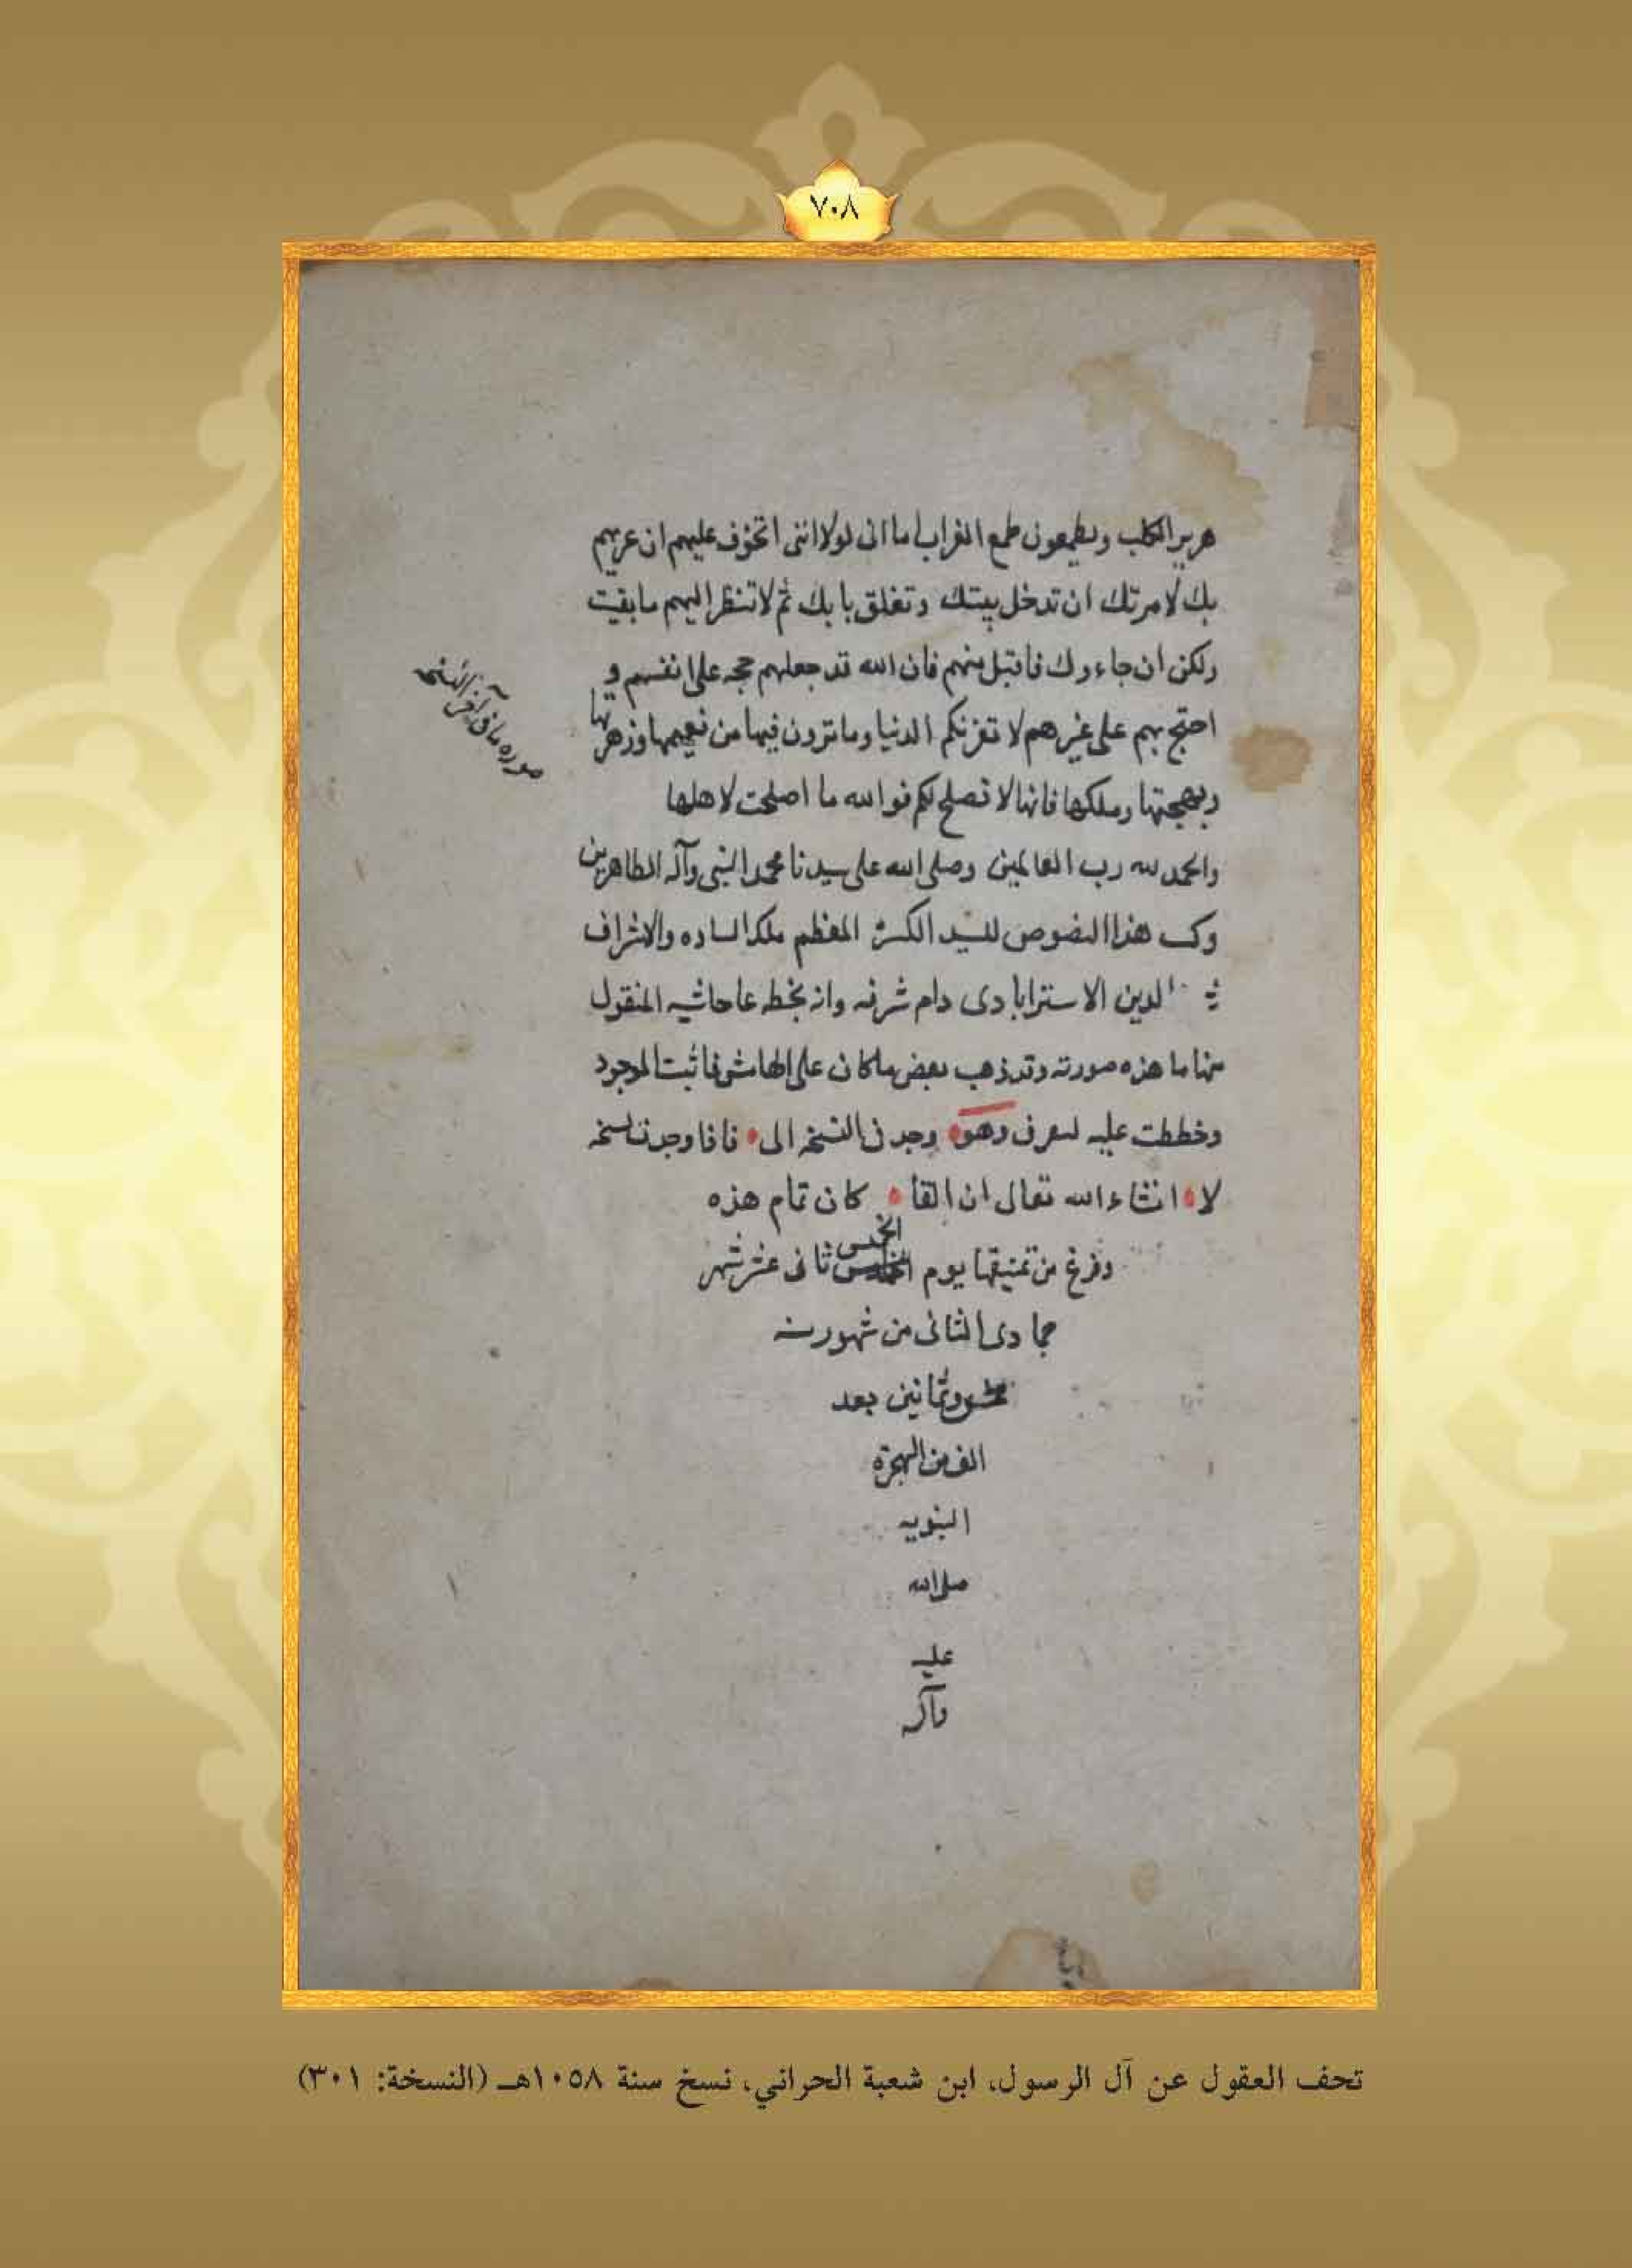 ٧٠٨
هرير الكلب ويطمعون طمع الغراب اما انى لولا اننى اتخوف عليهم ان عربهم
بك لامرتك ان تدخل بيتك وتغلق بابك ثم لا تنظر اليهم ما بقيت
ولكن ان جاءوك فاقبل منهم فان الله قد جعلهم حجه على انفسهم و
احتج بهم على غيرهم لا تغرنكم الدنيا وما ترون فيها من نعيمها وزهرتها
وبهجتها وملكها فانها لا تصلح لكم فوالله ما اصلحت لاهلها
صوره ما فى آخر النسخه
والحمد لله رب العالمين وصلى الله على سيدنا محمد النبى وآله الطاهرين
وكتب هذا النصوص للسيد الكبير المعظم ملك الساده والاشراف
الدين الاسترابادى دام شرفه وانه بخطه عا حاشيه المنقول
منها ما هذه صورته وقد ذهب بعض ما كان على الهامش فاثبت الموجود
وخططت عليه ليعرف وهو وجد فى النسخه الى فاذا وجدت نسخه
لا انشاء الله تعالى ان القا كان تمام هذه
وفرغ من تنميقها يوم الخميس ثانى عشر شهر
جمادى الثانى من شهور سنه
وثمانين بعد
الف من الهجرة
النبويه
صلى الله
عليه
وآله
تحف العقول عن آل الرسول، ابن شعبة الحراني، نسخ سنة ١٠٥٨هـ (النسخة: ٣٠١)